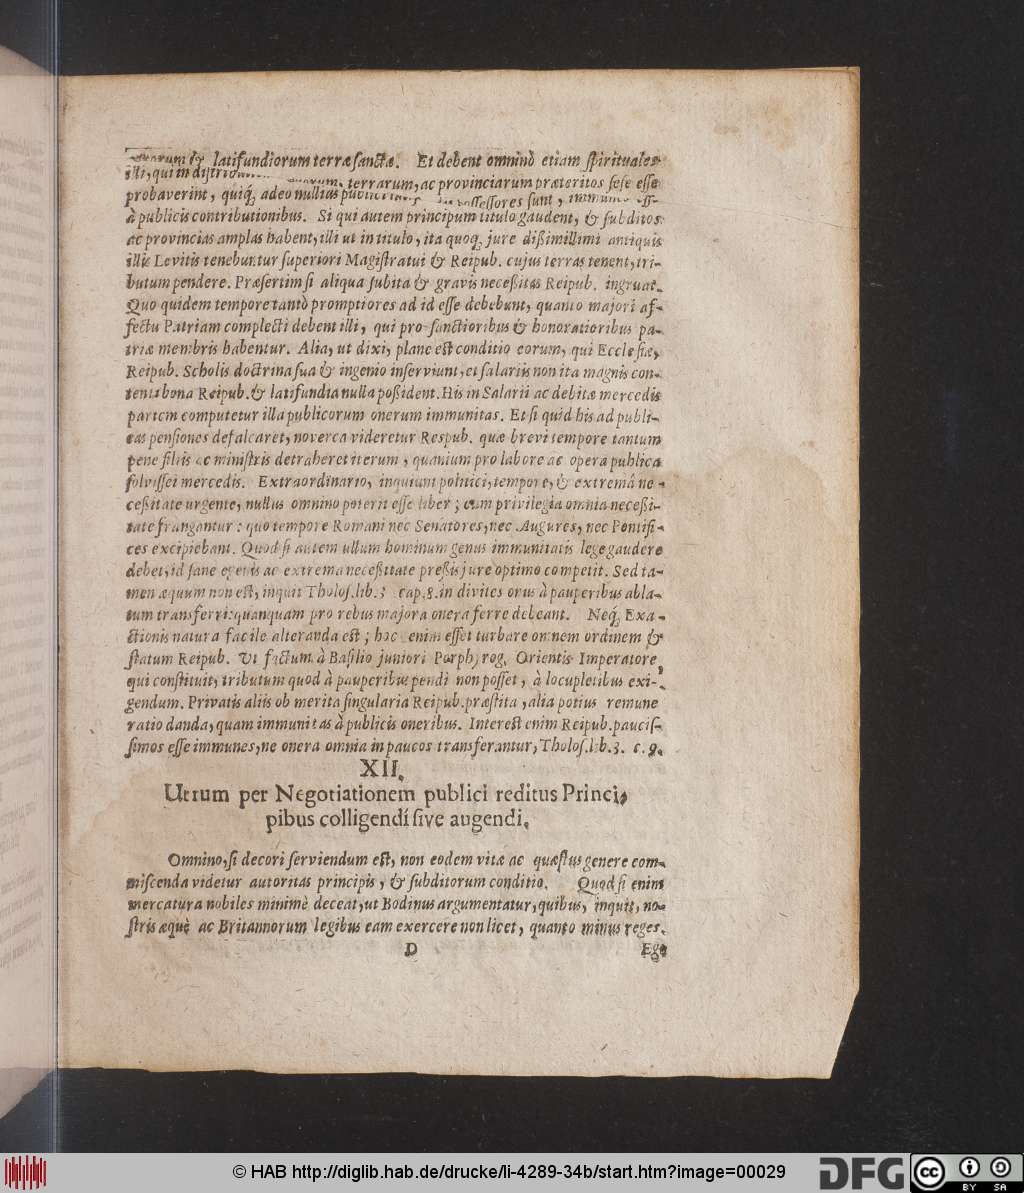 latifundiorum terræ sanctæ. Et debent omninò etiam spirituales
illi, qui in
terrarum, ac provinciarum præteritos sese esse
probaverint, quiq́, adeo nullius possessores sunt, immunes esse
à publicis contributionibus. Si qui autem principum titulo gaudent, & subditos
ac provincias amplas habent, illi ut in titulo, ita quoq, jure dißimillimi antiquis
illis Levitis tenebuntur superiori Magistratui & Reipub. cujus terras tenent, tri-
butum pendere. Præsertim si aliqua subita & gravis neceßitas Reipub. ingruat.
Quo quidem tempore tantò promptiores ad id esse debebunt, quanto majori af-
fectu Patriam complecti debent illi, qui pro sanctioribus & honoratioribus pa-
triæ membris habentur. Alia, ut dixi, plane est conditio eorum, qui Ecclesiæ,
Reipub. Scholis doctrina sua & ingenio inserviunt, et salariis non ita magnis con-
tenti bona Reipub. & latifundia nulla poßident. His in Salarii ac debitæ mercedis
partem computetur illa publicorum onerum immunitas. Et si quid his ad publi-
cas pensiones defalcaret, noverca videretur Respub. quæ brevi tempore tantum
pene filiis ac ministris detraheret iterum, quantum pro labore ac opera publica
solvisset mercedis. Extraordinario, inquiunt politici, tempore, & extremâ ne-
ceßitate urgente, nullus omnino poterit esse liber; cum privilegia omnia neceßi-
tate frangantur: quo tempore Romani nec Senatores, nec Augures, nec Pontifi-
ces excipiebant. Quod si autem ullum hominum genus immunitatis lege gaudere
debet, id sane egenis ac extrema neceßitate preßis jure optimo competit. Sed ta-
men æquum non est, inquit Tholos. lib. 3 cap. 8. in divites onus à pauperibus abla-
tum transferri: quanquam pro rebus majora onera ferre debeant. Neq́, Exa-
ctionis natura facile alteranda est; hoc enim esset turbare omnem ordinem &
statum Reipub. Ut factum à Basilio juniori Porphyrog. Orientis Imperatore,
qui constituit, tributum quod à pauperibus pendi non posset, à locupletibus exi-
gendum. Privatis aliis ob merita singularia Reipub. præstita, alia potius remune
ratio danda, quam immunitas à publicis oneribus. Interest enim Reipub. paucis-
simos esse immunes, ne onera omnia in paucos transferantur, Tholos. lib. 3. c. 9.
XII.
Utrum per Negotiationem publici reditus Princi-
pibus colligendi sive augendi.
Omnino, si decori serviendum est, non eodem vitæ ac quæstus genere com-
miscenda videtur autoritas principis, & subditorum conditio. Quod si enim
mercatura nobiles minimè deceat, ut Bodinus argumentatur, quibus, inquit, no-
stris æquè ac Britannorum legibus eam exercere non licet, quanto minus reges.
D Ego
© HAB http://diglib.hab.de/drucke/li-4289-34b/start.htm?image=00029
DFG
cc BY SA